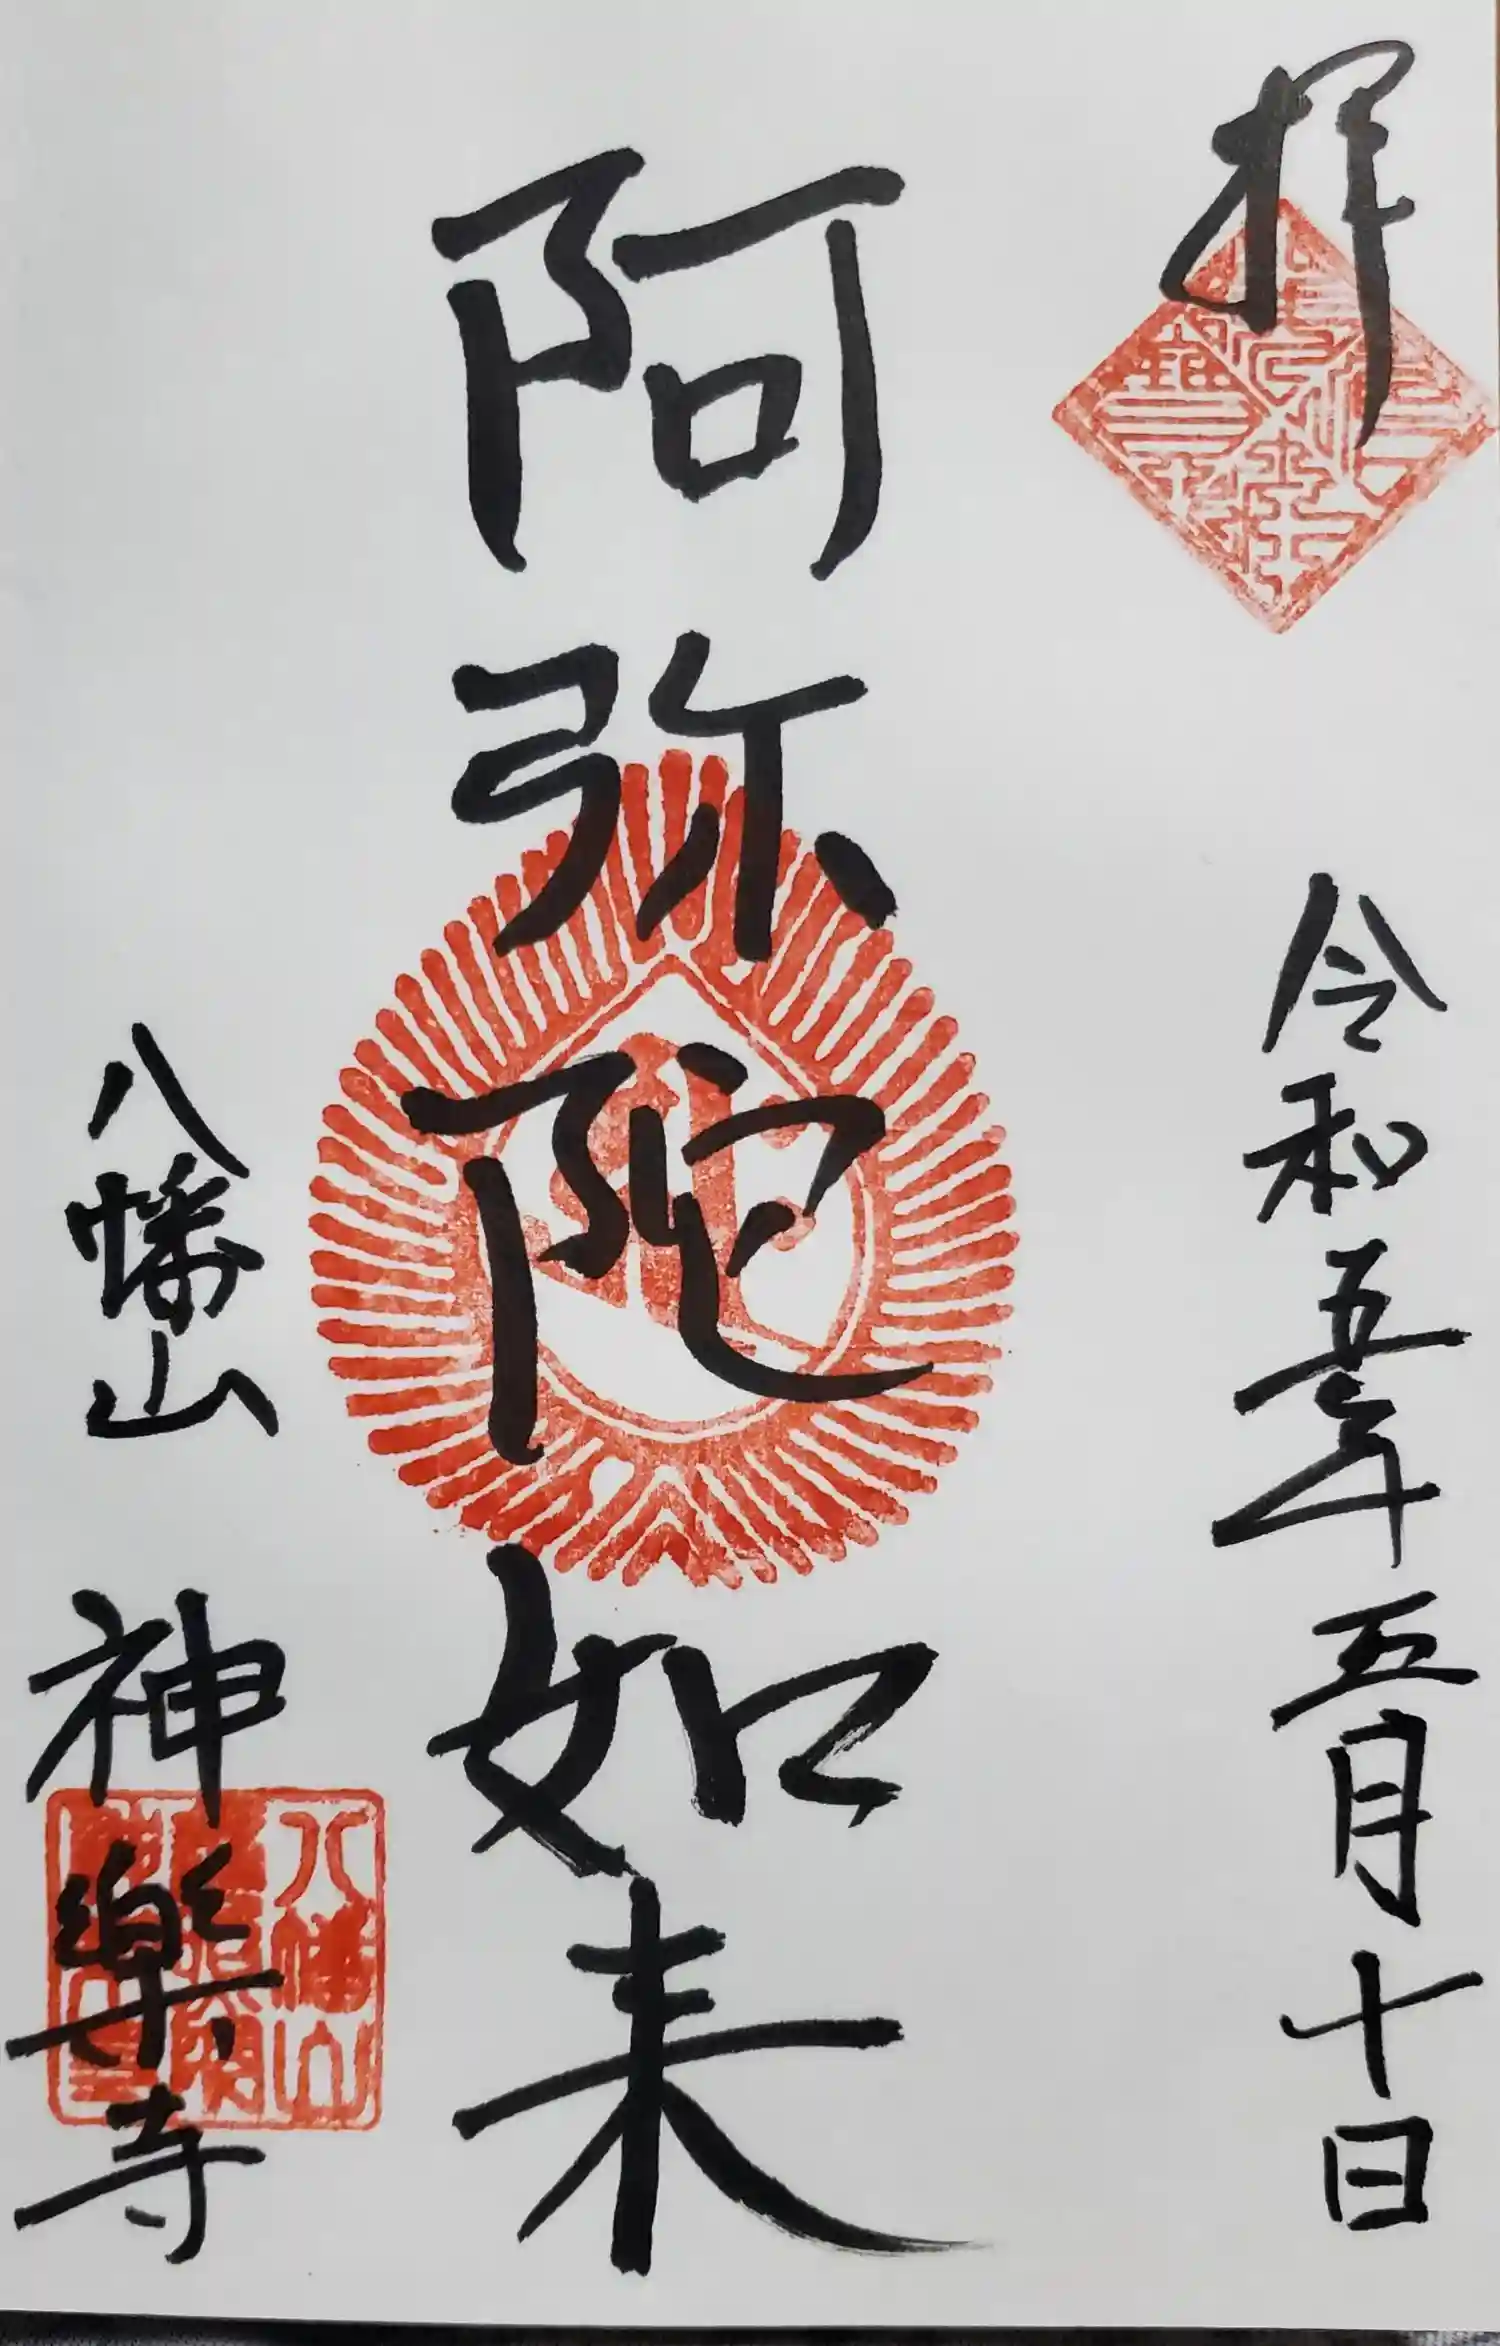 拝
令和五年五月十日
阿弥陀如来
八幡山
神樂寺
八幡山